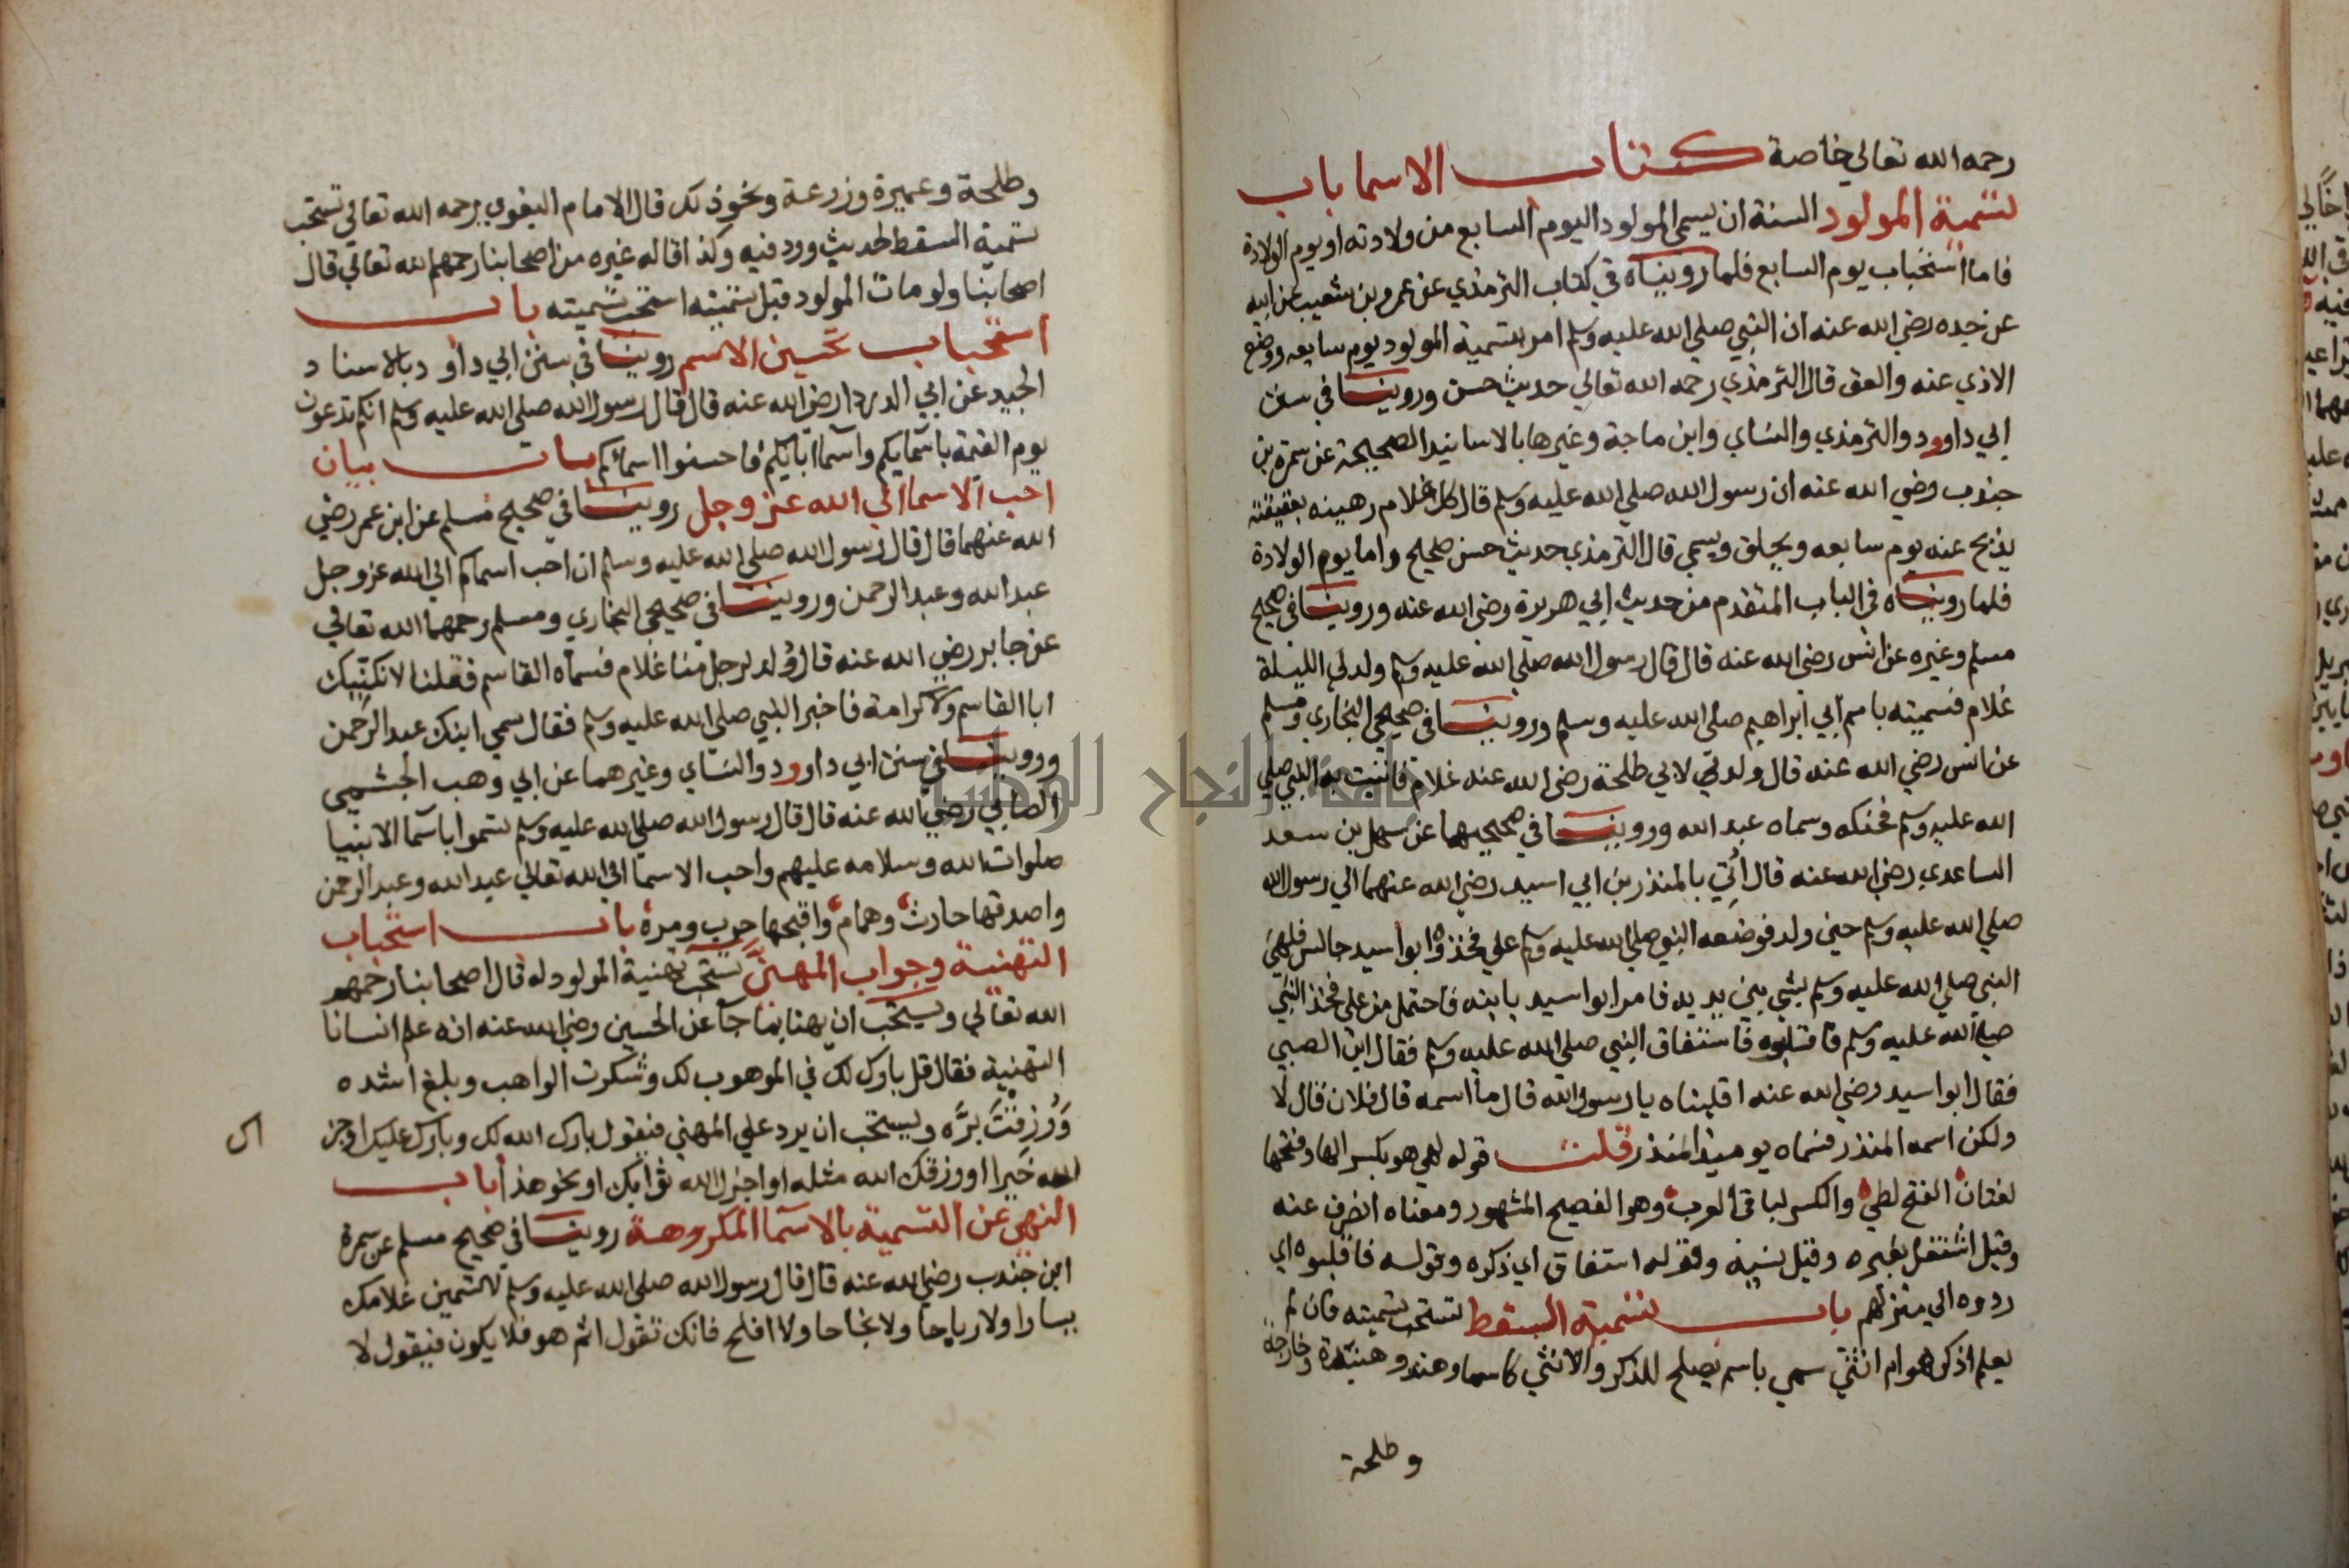 رحمه الله تعالي خاصة كتاب الاسما باب
تسمية المولود السنة ان يسمي المولود اليوم السابع من ولادته او يوم الولادة
فاما استحباب يوم السابع فلما رويناه في كتاب الترمذي عن عمرو بن شعيب عن ابيه
عن جده رضي الله عنه ان النبي صلي الله عليه وسلم امر بتسمية المولود يوم سابعه ووضع
الاذي عنه والعق قال الترمذي رحمه الله تعالي حديث حسن وروينا في سنن
ابي داوود والترمذي والنساي وابن ماجة وغيرها بالاسانيد الصحيحة عن سمرة بن
جندب رضي الله عنه ان رسول الله صلي الله عليه وسلم قال كل غلام رهينه بعقيقته
يذبح عنه يوم سابعه ويحلق ويسمي قال الترمذي حديث حسن صحيح واما يوم الولادة
فلما رويناه في الباب المتقدم من حديث ابي هريرة رضي الله عنه وروينا في صحيح
مسلم وغيره عن انس رضي الله عنه قال قال رسول الله صلي الله عليه وسلم ولد لي الليلة
غلام فسميته باسم ابي ابراهيم صلي الله عليه وسلم وروينا في صحيحي البخاري ومسلم
عن انس رضي الله عنه قال ولد لابي طلحة رضي الله عنه غلام فاتيت به النبي صلي
الله عليه وسلم فحنكه وسماه عبد الله وروينا في صحيحيهما عن سهل بن سعد
الساعدي رضي الله عنه قال أُتِي بالمنذر بن ابي اسيد رضي الله عنهما الي رسول الله
صلي الله عليه وسلم حين ولد فوضعه النبي صلي الله عليه وسلم علي فخذه وابو اسيد جالس فلهي
النبي صلي الله عليه وسلم بشي بين يديه فامر ابو اسيد بابنه فاحتمل من علي فخذ النبي
صلي الله عليه وسلم فاقلبوه فاستفاق النبي صلي الله عليه وسلم فقال اين الصبي
فقال ابو اسيد رضي الله عنه اقلبناه يا رسول الله قال ما اسمه قال فلان قال لا
ولكن اسمه المنذر فسماه يوميذ المنذر قلت قوله لهي هو بكسر الها وفتحها
لغتان الفتح لطي والكسر لباقي العرب وهو الفصيح المشهور ومعناه انصرف عنه
وقيل اشتغل بغيره وقيل نسيه وقوله استفاق اي ذكره وقوله فاقلبوه اي
ردوه الي منزلهم باب تسمية السقط تستحب تسميته فان لم
يعلم اذكر هو ام انثي سمي باسم يصلح للذكر والانثي كاسما وهند وهنيدة وخارجة
وطلحة
وطلحة وعميرة وزرعة ونحو ذلك قال الامام البغوي رحمه الله تعالي تستحب
تسمية السقط لحديث ورد فيه وكذا قاله غيره من اصحابنا رحمهم الله تعالي قال
اصحابنا ولو مات المولود قبل تسميته استحب تسميته باب
استحباب تحسين الاسم روينا في سنن ابي داود بالاسناد
الجيد عن ابي الدردا رضي الله عنه قال قال رسول الله صلي الله عليه وسلم انكم تدعون
يوم القيمة باسمايكم واسما ابايكم فاحسنوا اسمائكم باب بيان
احب الاسما الي الله عز وجل روينا في صحيح مسلم عن ابن عمر رضي
الله عنهما قال قال رسول الله صلي الله عليه وسلم ان احب اسماكم الي الله عز وجل
عبد الله وعبد الرحمن وروينا في صحيحي البخاري ومسلم رحمهما الله تعالي
عن جابر رضي الله عنه قال وُلد لرجل منا غلام فسماه القاسم فقلنا لا نكنيك
ابا القاسم ولا كرامة فاخبر النبي صلي الله عليه وسلم فقال سمي ابنك عبد الرحمن
وروينا في سنن ابي داوود والنساي وغيرهما عن ابي وهب الجشمي
الصحابي رضي الله عنه قال قال رسول الله صلي الله عليه وسلم تسموا باسما الانبيا
صلوات الله وسلامه عليهم واحب الاسما الي الله تعالي عبد الله وعبد الرحمن
واصدقها حارث وهمام واقبحها حرب ومرة باب استحباب
التهنية وجواب المهني تستحب تهنية المولود له قال اصحابنا رحمهم
الله تعالي ويستحب ان يهنا بما جآ عن الحسين رضي الله عنه انه علم انسانا
التهنية فقال قل بارك لك في الموهوب لك وشكرت الواهب وبلغ اشده
وَرُزِقتَ بَرَّه ويستحب ان يرد علي المهني فيقول بارك الله لك وبارك عليك او جز
اك
الله خيرا او رزقك الله مثله او اجزل الله ثوابك او نحو هذا باب
النهي عن التسمية بالاسما المكروهة روينا في صحيح مسلم عن سمرة
ابن جندب رضي الله عنه قال قال رسول الله صلي الله عليه وسلم لا تسمين غلامك
يسارا ولا رباحا ولا نجاحا ولا افلح فانك تقول اثم هو فلا يكون فيقول لا
جامعة النجاح الوطنية